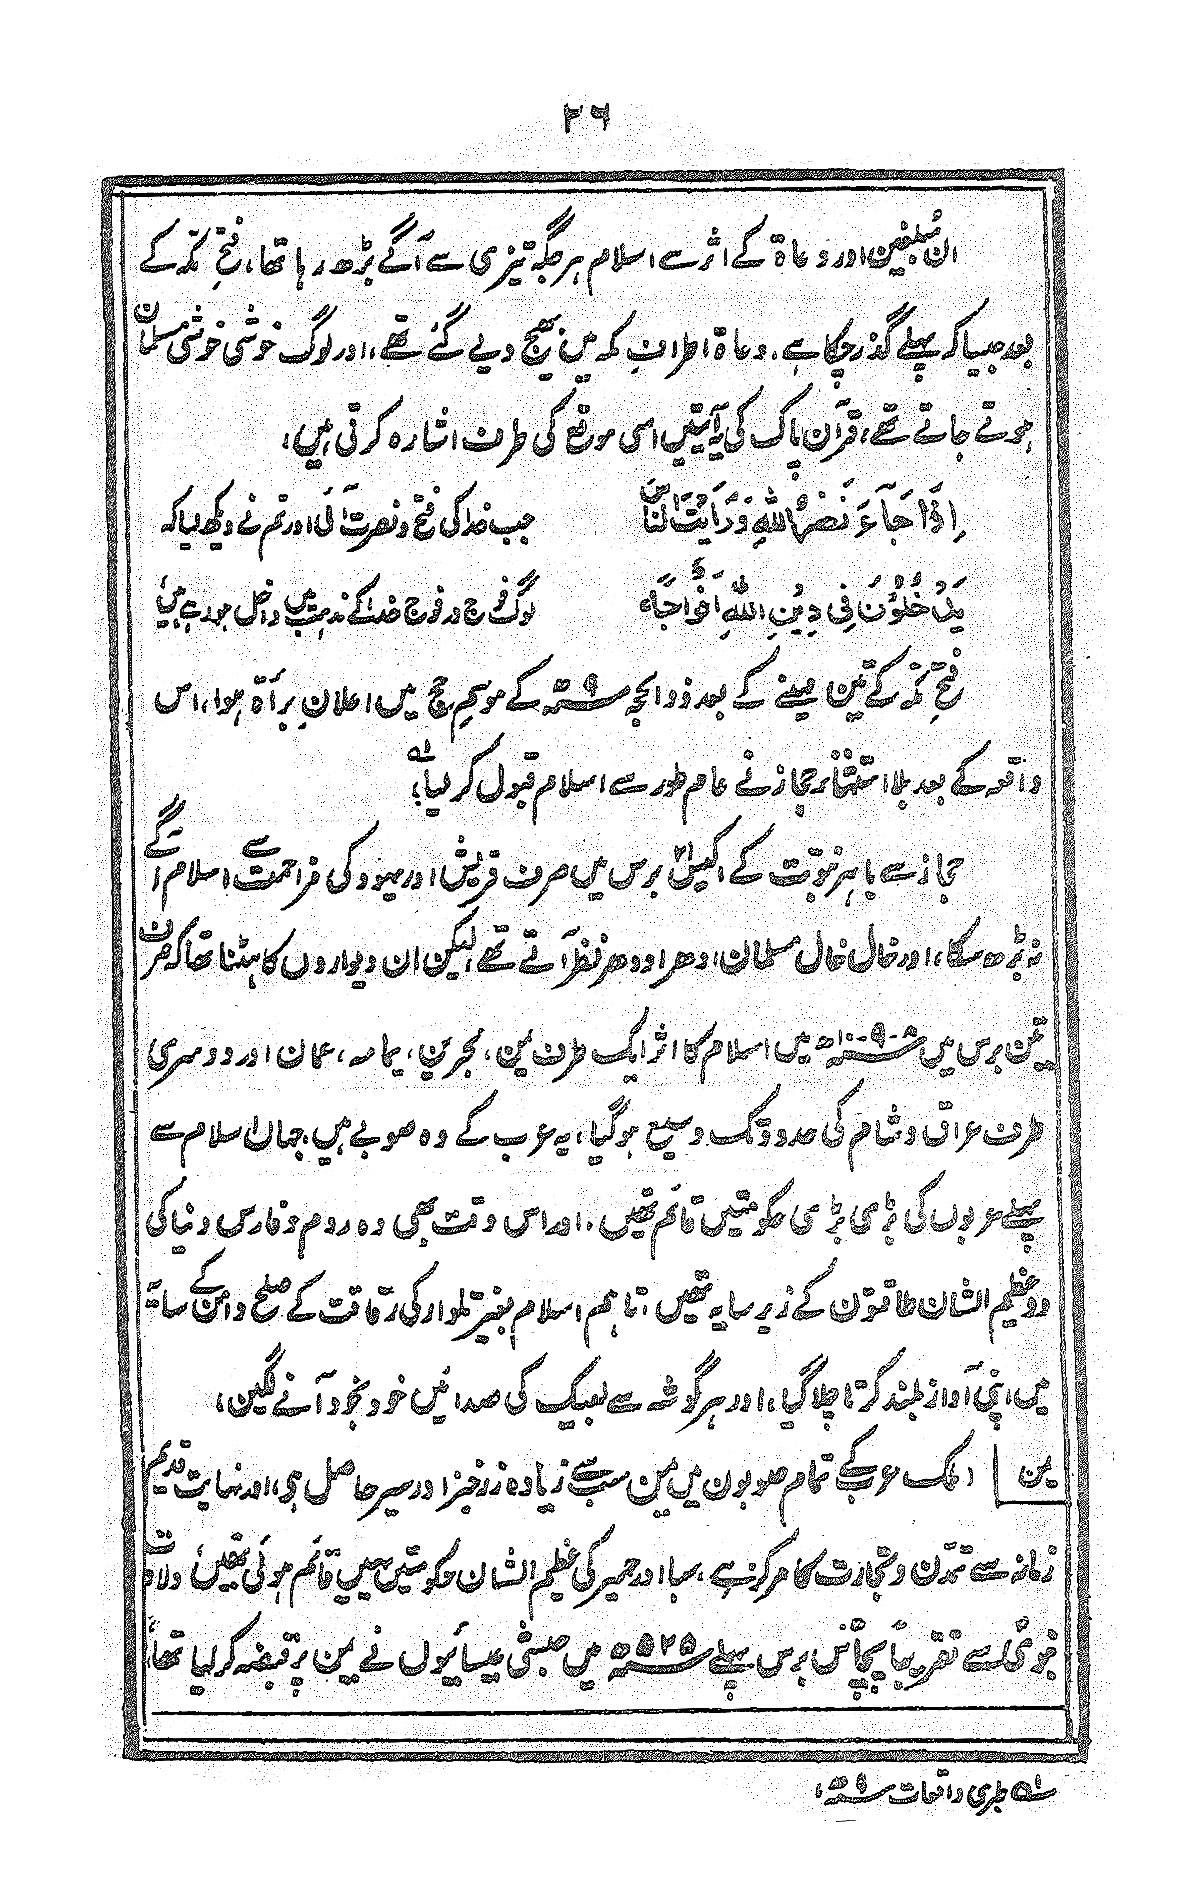 ۲۶
ان مبلغین اور دعاۃ کے اثر سے اسلام ہر جگہ تیزی سے آگے بڑھ رہا تھا، فتحِ مکہ کے
بعد جیسا کہ پہلے گذر چکا ہے، دعاۃ اطرافِ مکہ میں بھیج دیے گئے تھے، اور لوگ خوشی خوشی مسلمان
ہوتے جاتے تھے، قرآن پاک کی یہ آیتیں اسی موقع کی طرف اشارہ کرتی ہیں،
اِذَا جَآءَ نَصْرُ اللهِ وَرَاَیْتَ النَّاسَ جب خدا کی فتح و نصرت آئی اور تم نے دیکھ لیا کہ
یَدْخُلُوْنَ فِی دِیْنِ اللهِ اَفْوَاجًاہ لوگ فوج در فوج خدا کے مذہب میں داخل ہو رہے ہیں
فتحِ مکہ کے تین مہینے کے بعد ذوالحجہ ۹ھ کے موسمِ حج میں اعلانِ برأۃ ہوا، اس
واقعہ کے بعد بلا استثناء حجاز نے عام طور سے اسلام قبول کر لیا؛ ۱ھ
حجاز سے باہر نبوّت کے اکیس ۲۱ برس میں صرف قریش اور یہود کی مزاحمت سے اسلام آگے
نہ بڑھ سکا، اور خال خال مسلمان ادھر اودھر نظر آتے تھے، لیکن ان دیواروں کا ہٹنا تھا کہ صرف
تین برس میں ۸-۹-۱۰ھ میں اسلام کا اثر ایک طرف یمن، بحرین، یمامہ، عمان اور دوسری
طرف عراق و شام کی حدود تک وسیع ہو گیا، یہ عرب کے وہ صوبے ہیں، جہاں اسلام سے
پہلے عربوں کی بڑی بڑی حکومتیں قائم تھیں، اور اس وقت بھی وہ روم و فارس دنیا کی
دو عظیم الشان طاقتوں کے زیر سایہ تھیں، تاہم اسلام بغیر تلوار کی رفاقت کے صلح و امن کے سایہ
میں اپنی آواز بلند کرتا چلا گیا، اور ہر گوشہ سے لبیک کی صدائیں خود بخود آنے لگین،
یمن ملک عرب کے تمام صوبوں میں یمن سب سے زیادہ زرخیز اور سیر حاصل ہی، اور نہایت قدیم
زمانہ سے تمدّن و تجارت کا مرکز ہے، سبا اور حمیر کی عظیم الشان حکومتیں یہیں قائم ہوئی تھیں، ولادت
نبوی سے تقریباً پچاس برس پہلے ۵۲۵ء میں حبشی عیسائیوں نے یمن پر قبضہ کر لیا تھا،
۱ھ طبری واقعات ۹ھ،